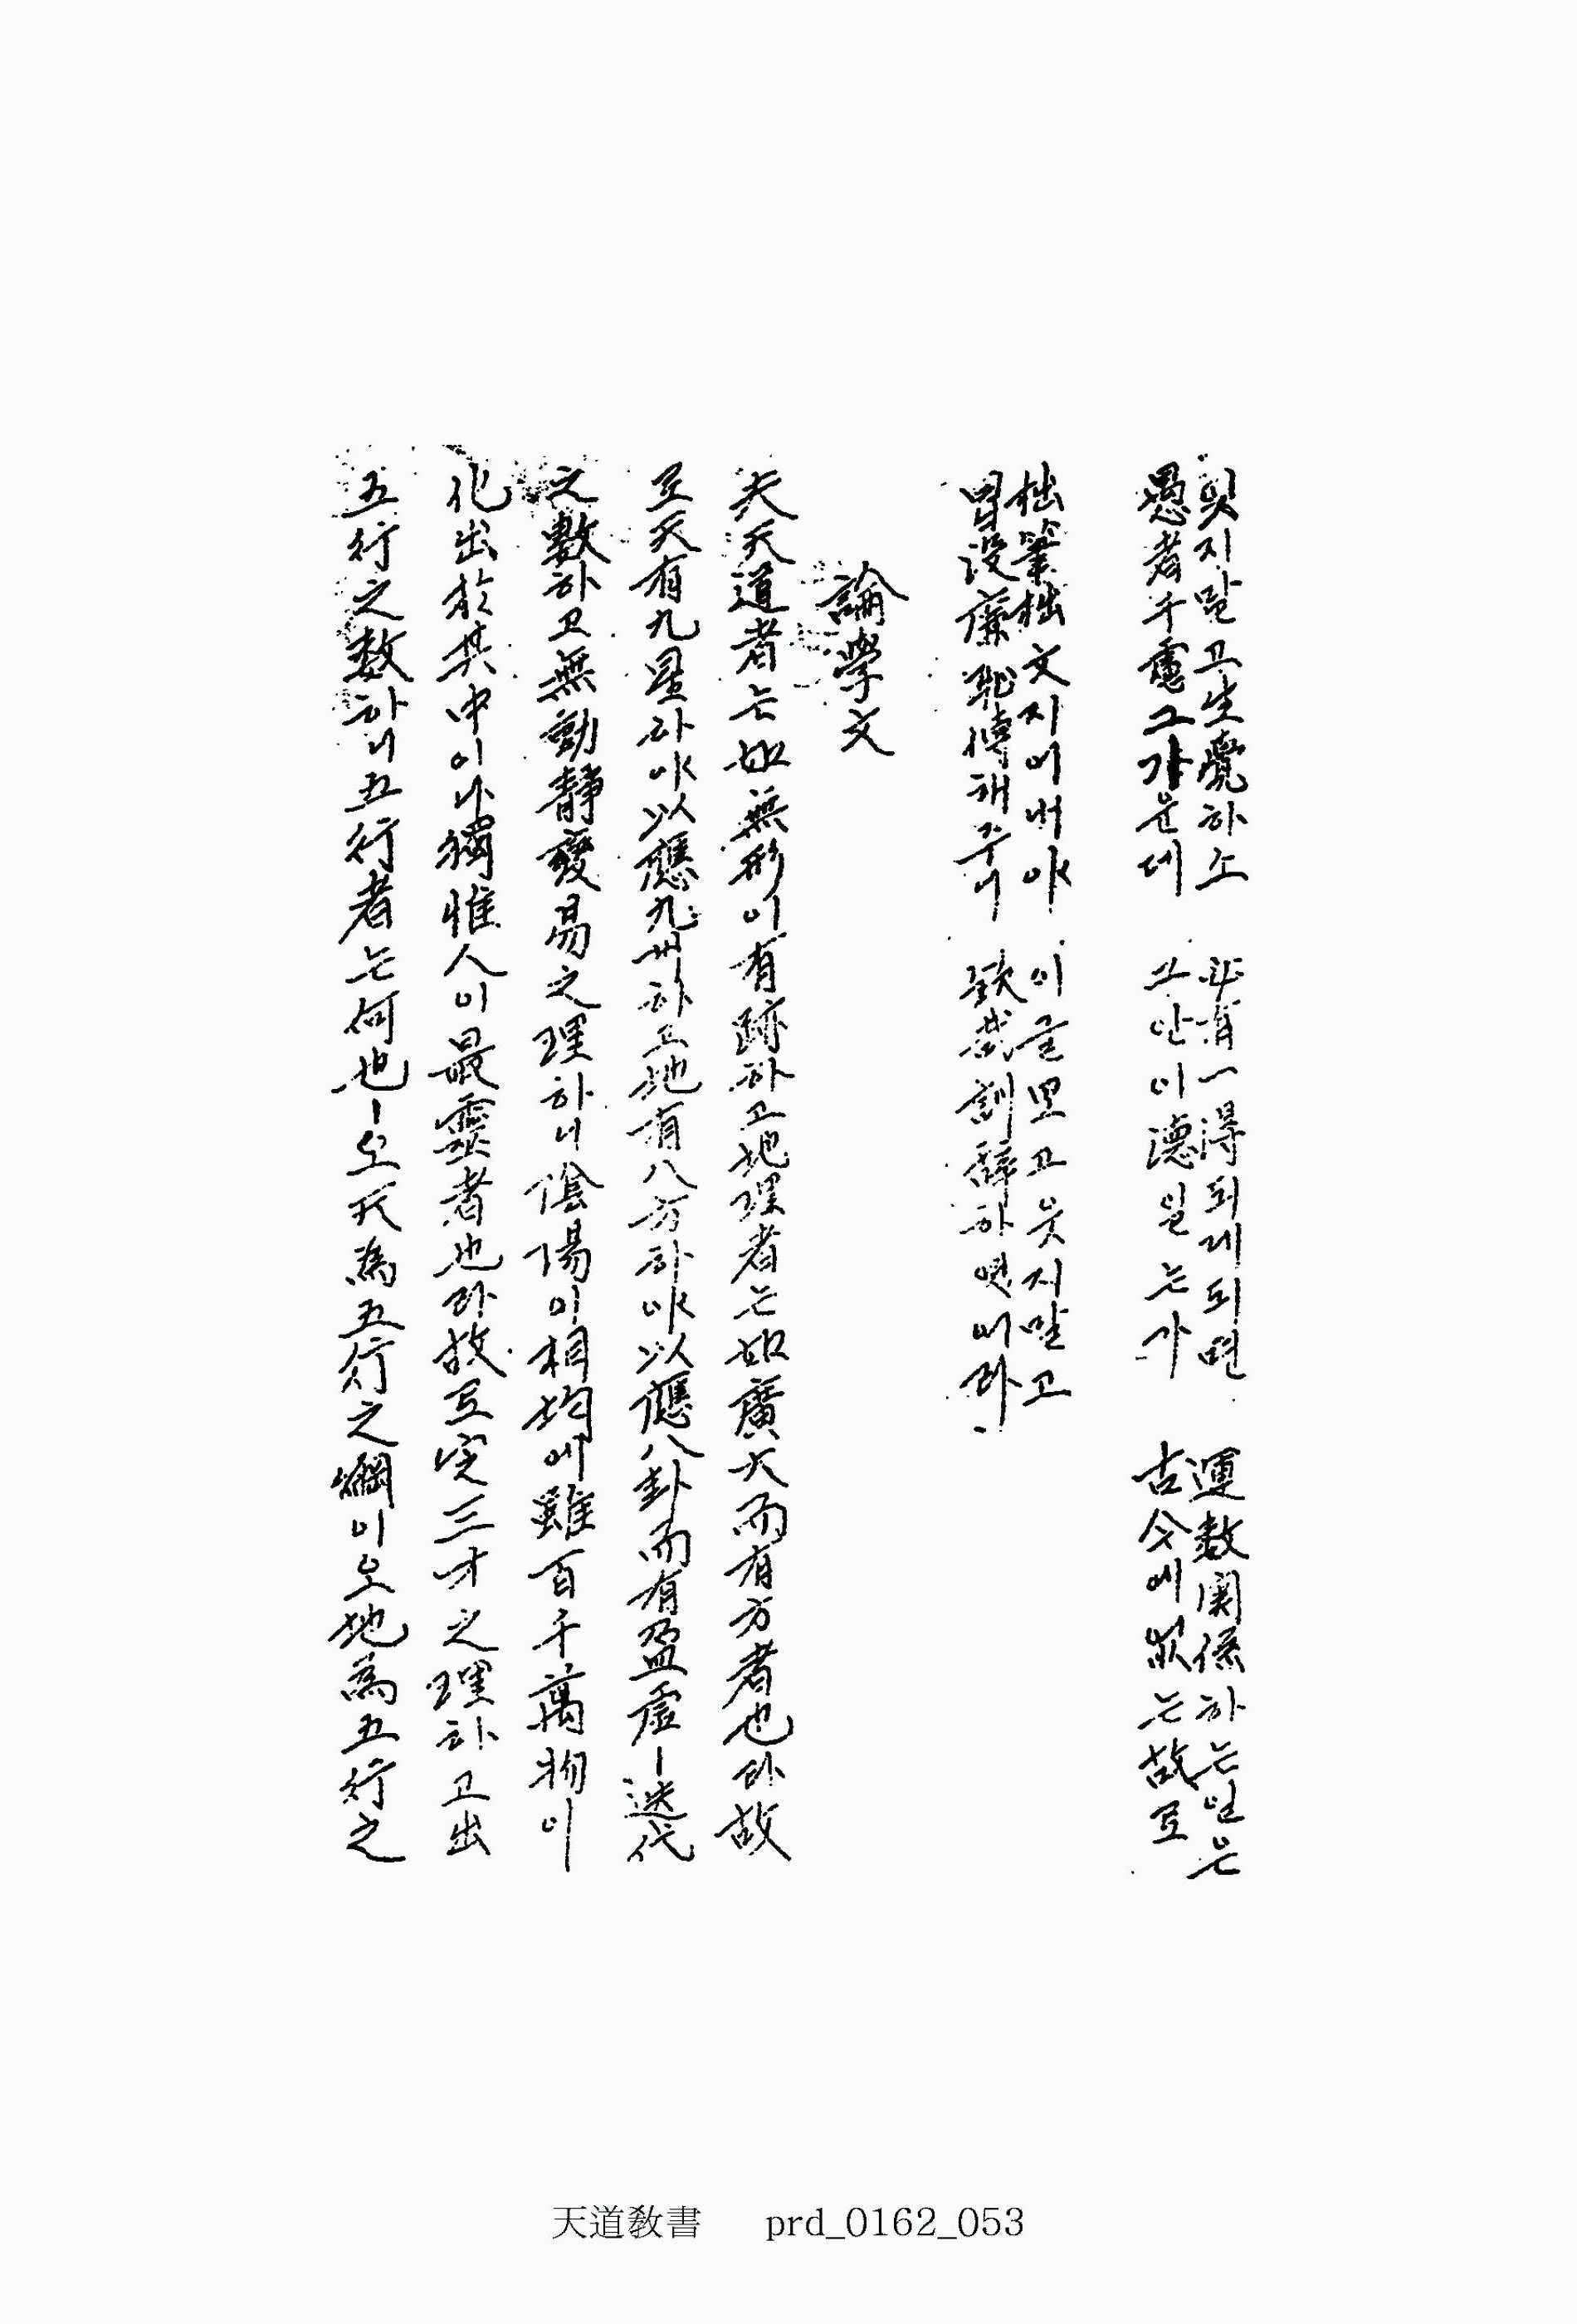 잇지말고生覺하소 必有一得되게되면 運数関係하는일은
愚者千慮그가운데 그안이德일는가 古今에없는故로
拙筆拙文지어내야 이글보고웃지말고
冒沒廉恥傳해주니 欽哉訓辭하엿어라
論學文
夫天道者는如無形이有跡하고地理者는如廣大而有方者也라故
로天有九星하야以應九州하고地有八方하야以應八卦而有盈虛ㅣ迭代
之數하고無動静變易之理하니陰陽이相均에雖百千萬物이
化出於其中이나獨惟人이最靈者也라故로定三才之理하고出
五行之数하니五行者는何也ㅣ오天為五行之綱이오地為五行之
天道教書 prd_0162_053